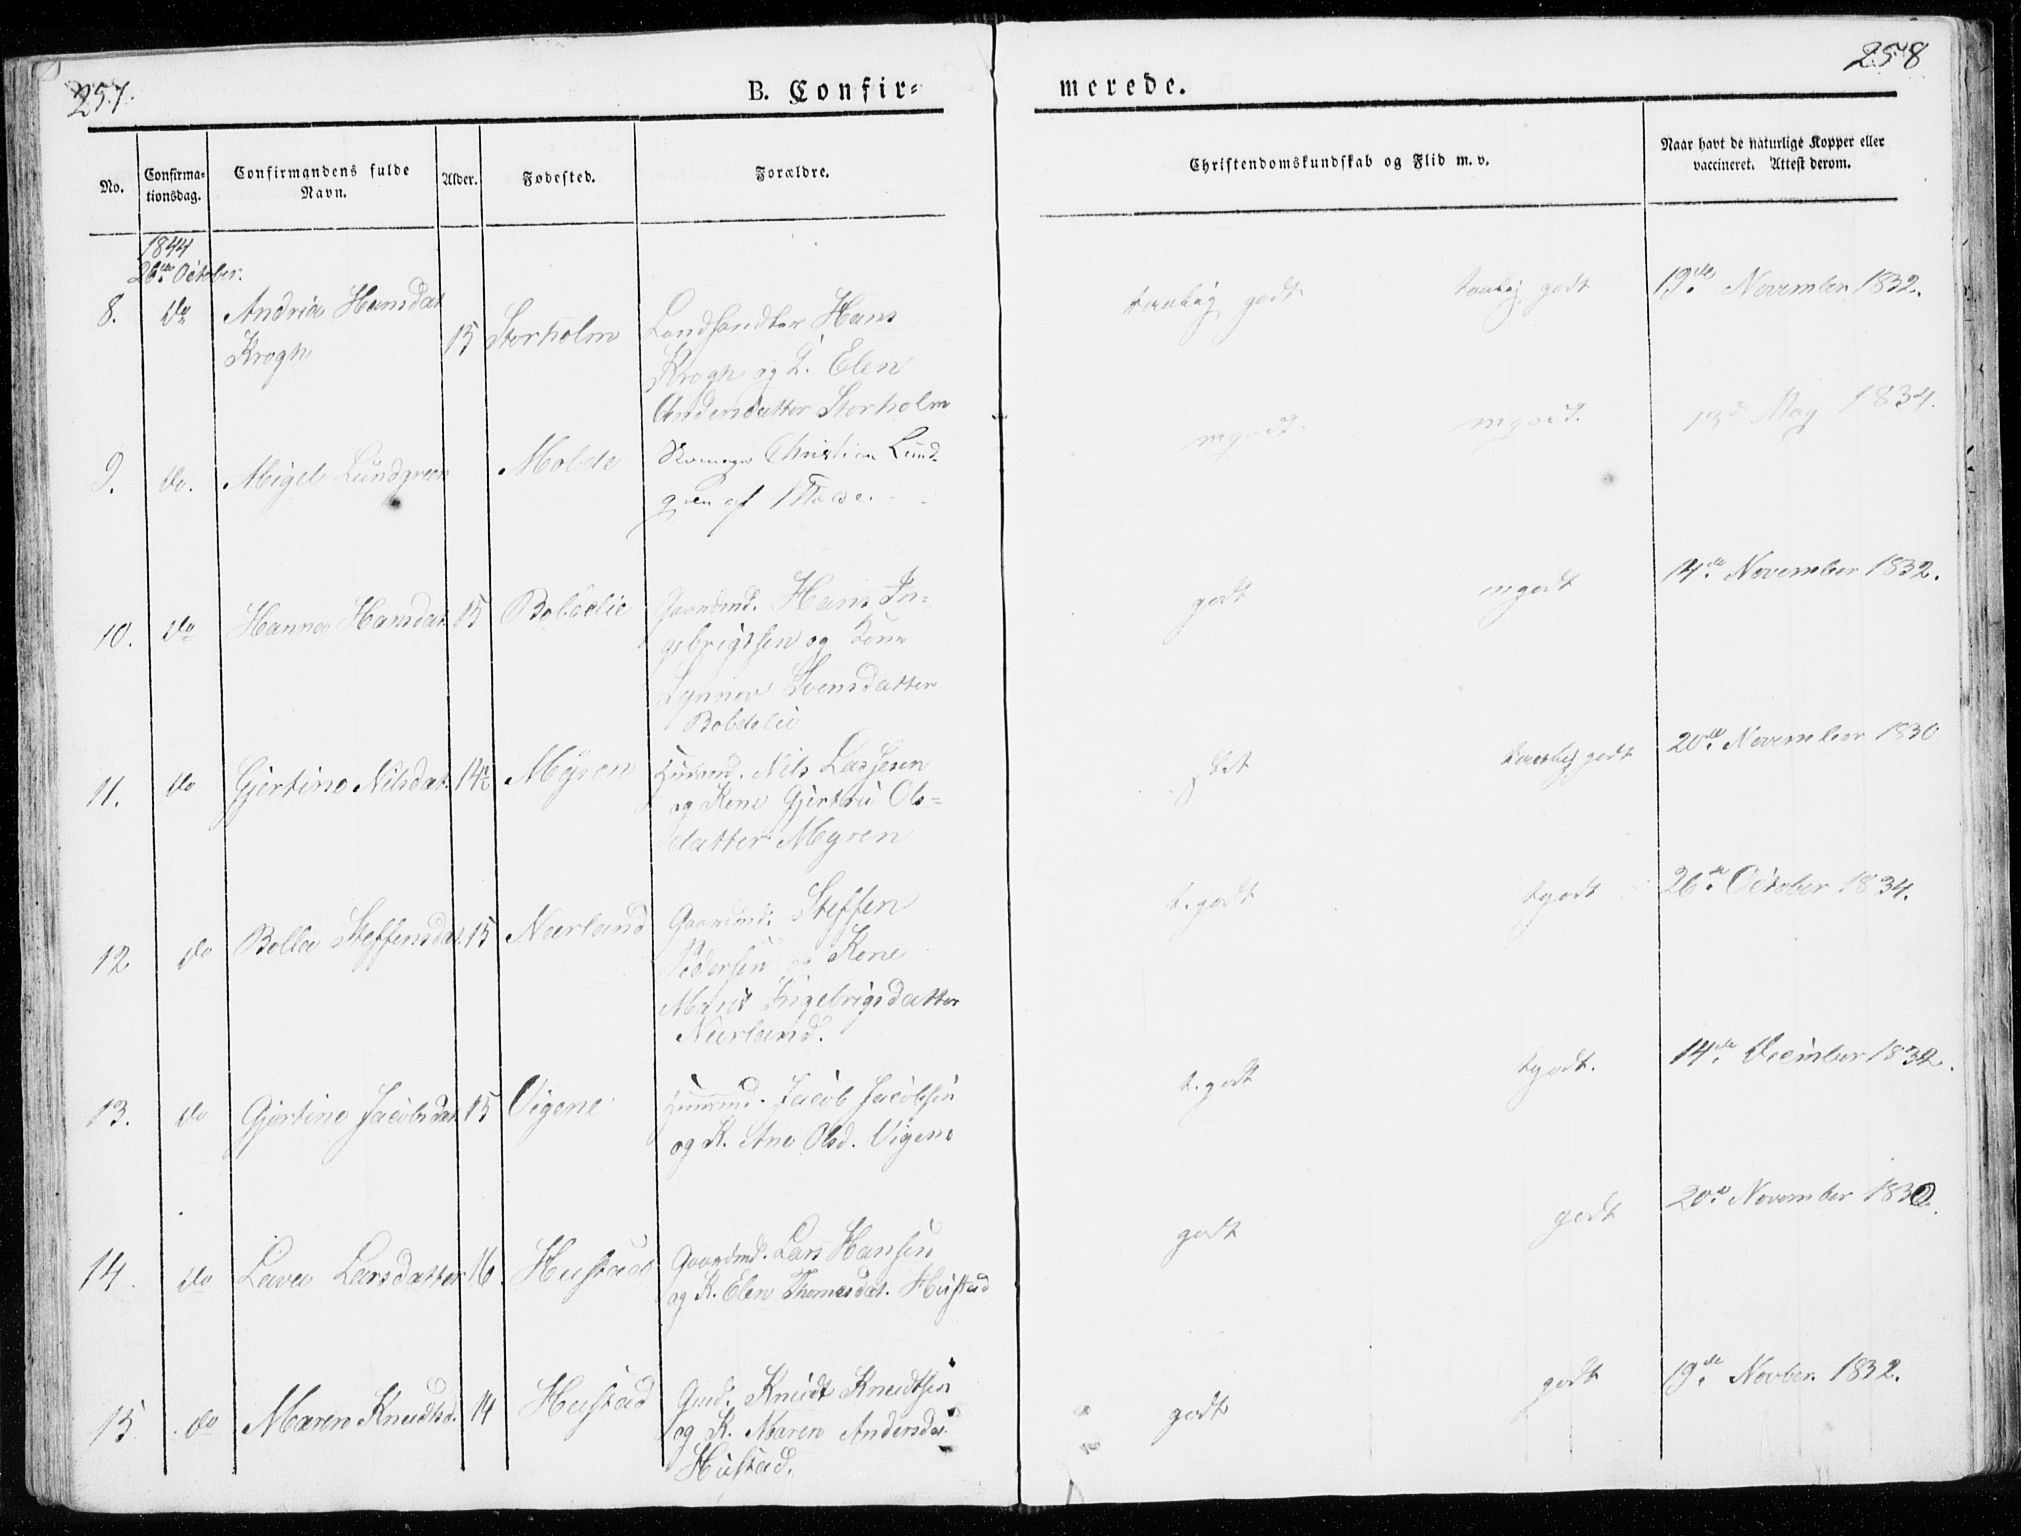 257.
258
B. Confir=
merede.
No.
Confirma-
tionsdag.
Confirmandens fulde
Navn.
Alder.
Fødested.
Forældre.
Christendomskundskab og Flid m. v.
Naar havt de naturlige Kopper eller
vaccineret. Attest derom.
1844
26de October.
8. do Andria Hansdat. 15 Storholm Landhandler Hans
Krogh
Krogh og Elen
Andersdatter Storholm
godt godt 19de November 1832.
9. do. Lundgreen Molde Christian Lund-
gren af Molde.
mgodt. mgodt. 13de May 1834.
10. do Hanna Hansdat. 15 Boldelie Gaardmd. Hans In-
gebrigtsen og Kone
Synnov Svensdatter
Boldelie
godt mgodt 14de November 1832.
11. do Gjertine Nilsdat. 14½ Myren Huusmd. Nils Larssen
og Kone Gjertrud Ols-
datter Myren
godt 20de November 1830
12 do Steffensdat. 15 Nærland Gaardmd. Steffen
Pedersen og Kone
Marit Ingebrigsdatter
Nærland.
t.godt tgodt 26de October 1834.
13. do Gjertine Jacobsdat. 15 Vigene Huusmd. Jacob Jacobsen
og K. Ane Olsd. Vigene
t.godt tgodt. 14de December 1832.
14. do Larsdatter 16. Hustad Gaardmd. Lars Hansen
og K. Elen Thomasdat. Hustad
godt godt 20de November 1830.
15. do Maren Knudtsd. 14 Hustad Gmd. Knudt Knudtsen
og K. Maren Andersdat.
Hustad.
godt godt 19de Novber. 1832.